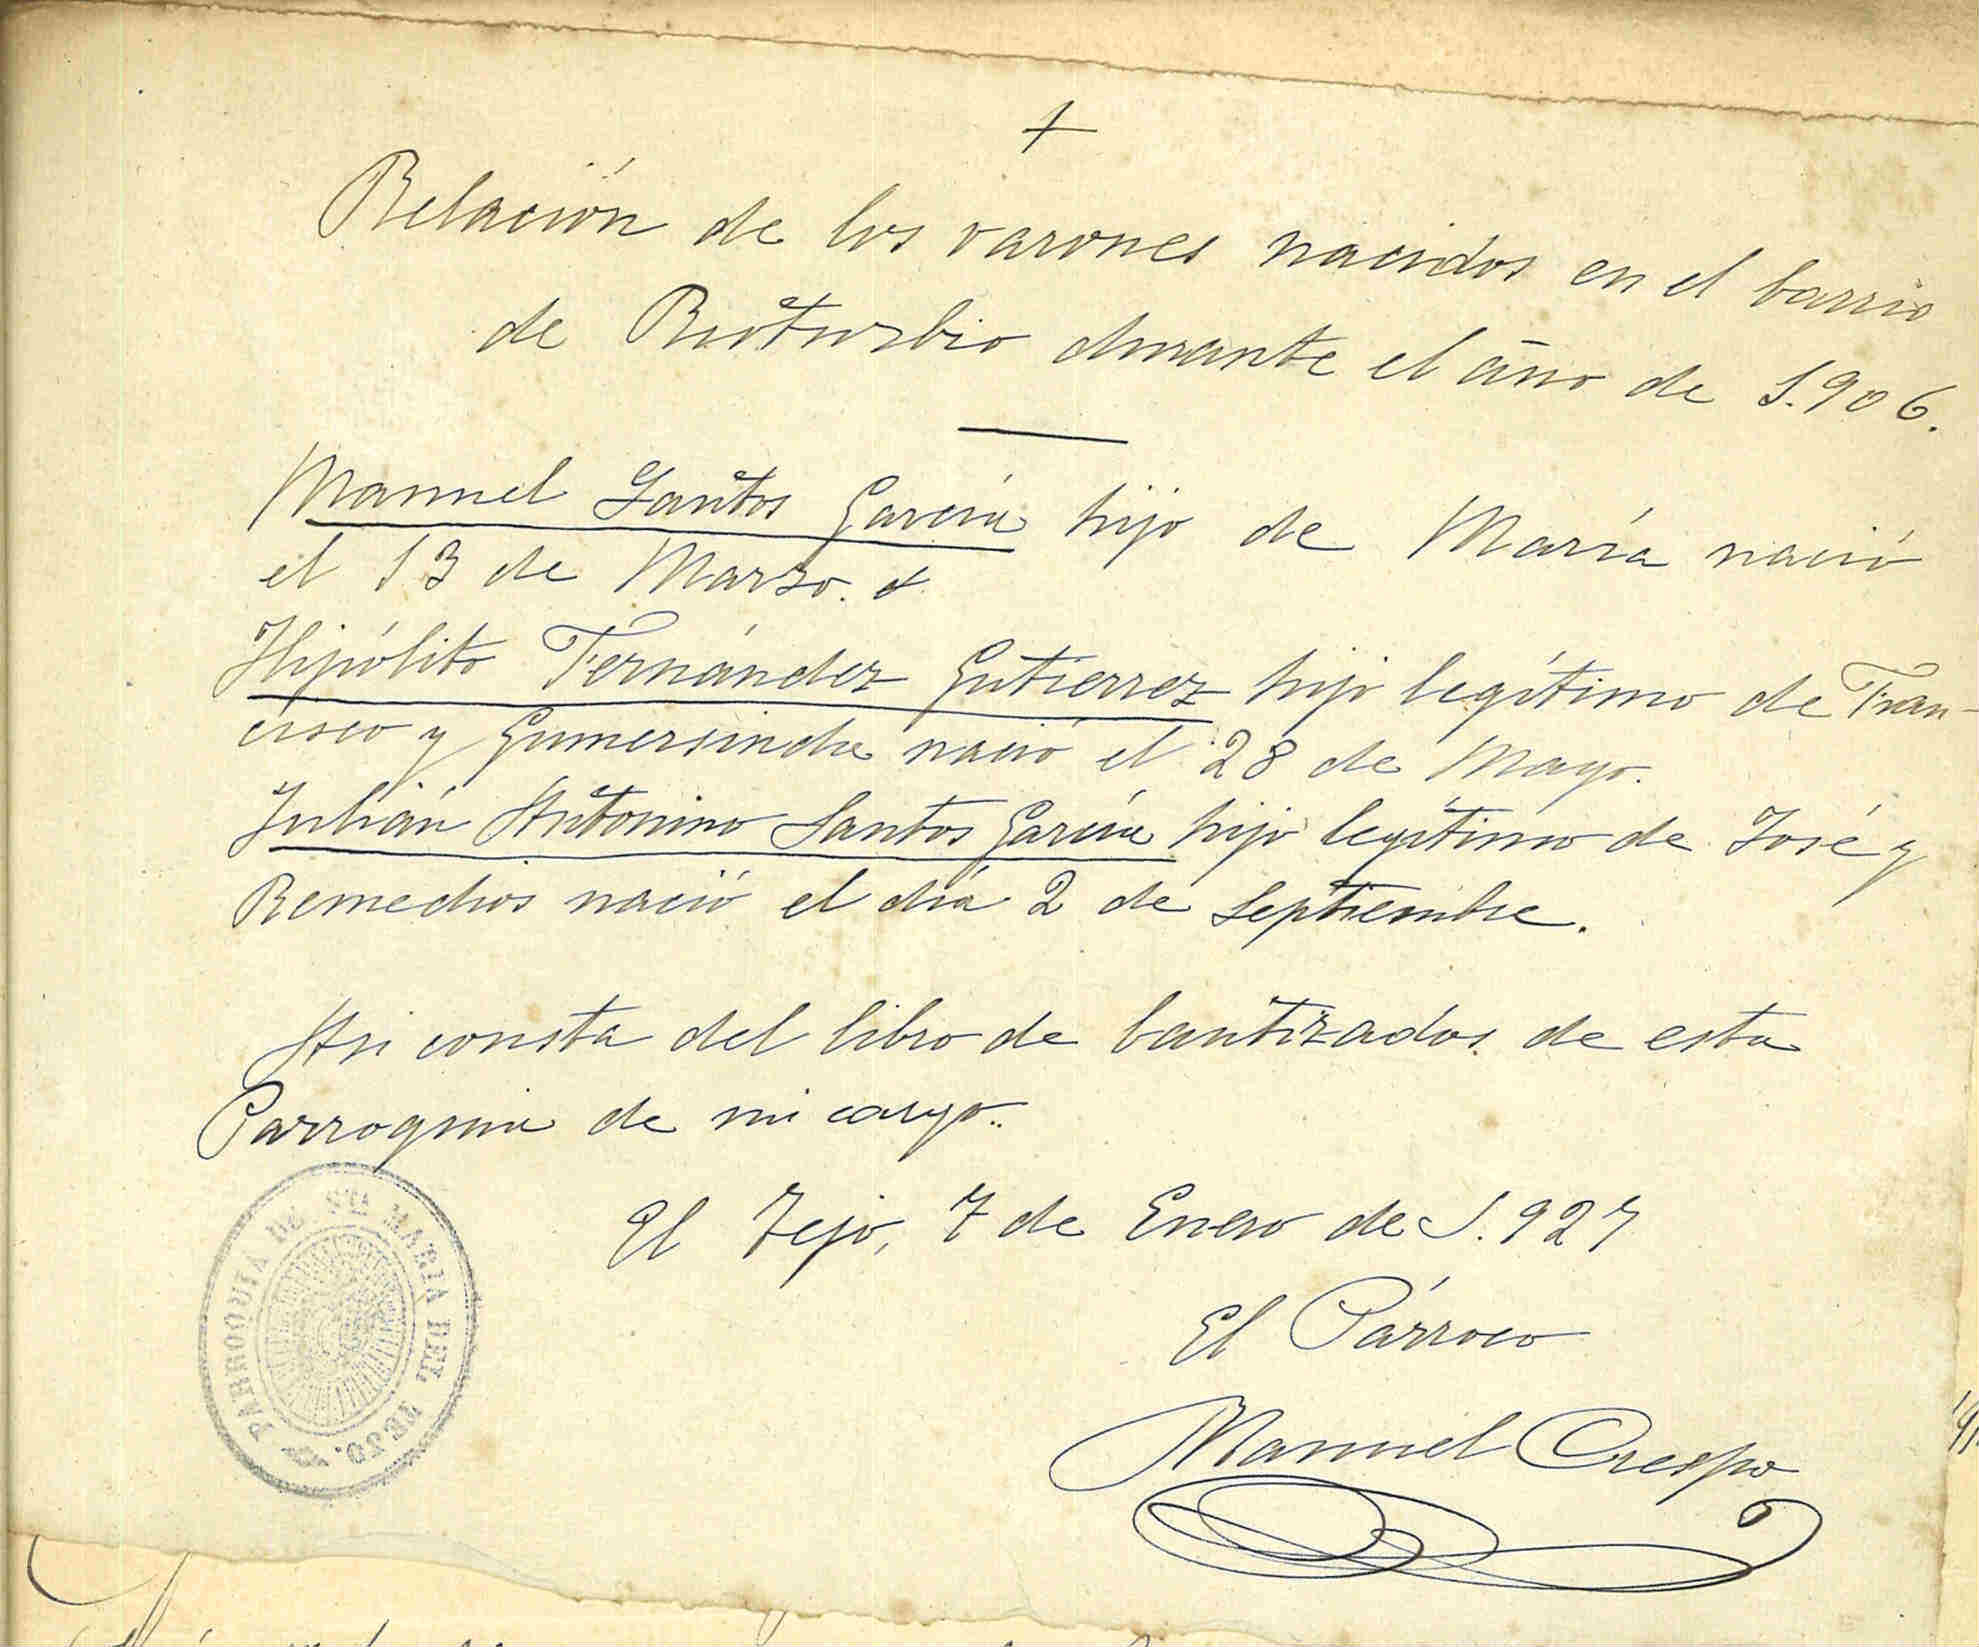 +
Relación de los varones nacidos en el barrio
de Rioturbio durante el año de 1.906.
Manuel Santos García hijo de María nació
el 13 de Marzo.
Hipólito Fernández Gutierrez hijo legítimo de Fran-
cisco y Gumersinda nació el 28 de Mayo.
Julián Antonino Santos García hijo legítimo de José y
Remedios nació el día 2 de Septiembre.
Asi consta del libro de bautizados de esta
Parroquia de mi cargo.
El Tejo, 7 de Enero de 1.927
El Párroco
Manuel Crespo
PARROQUIA DE STA MARIA DEL TEJO.